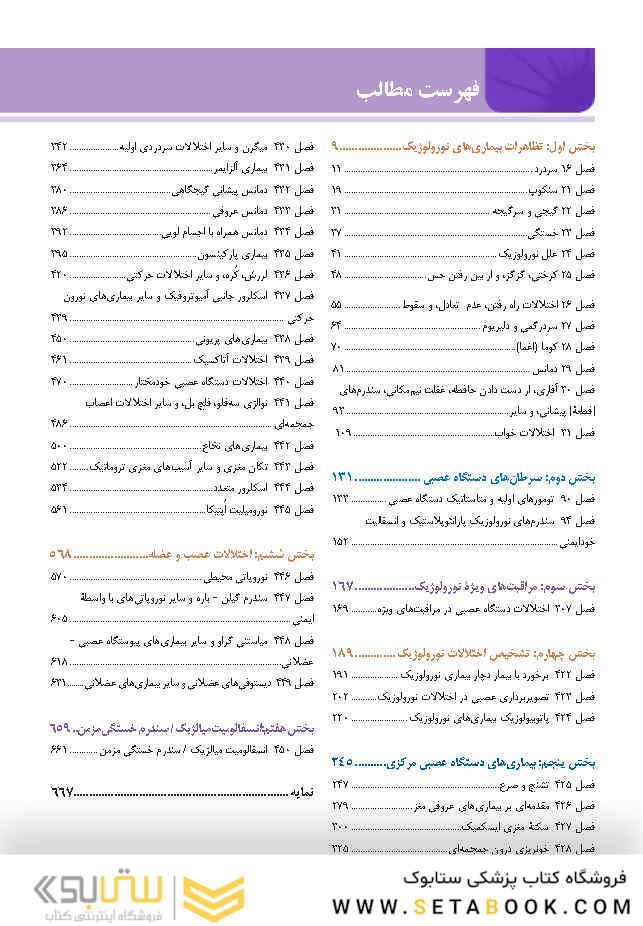 فهرست مطالب
بخش اول: تظاهرات بیماری‌های نورولوژیک ..................... ۹
فصل ۱۶ سردرد ..................... ۱۱
فصل ۲۱ سنکوپ ..................... ۱۹
فصل ۲۲ گیجی و سرگیجه ..................... ۳۱
فصل ۲۳ خستگی ..................... ۳۷
فصل ۲۴ علل نورولوژیک ..................... ۴۱
فصل ۲۵ کرختی، گزگز، و از بین رفتن حس ..................... ۴۸
فصل ۲۶ اختلالات راه رفتن، عدم تعادل، و سقوط ..................... ۵۵
فصل ۲۷ سردرگمی و دلیریوم ..................... ۶۴
فصل ۲۸ کوما (اغما) ..................... ۷۰
فصل ۲۹ دمانس ..................... ۸۱
فصل ۳۰ آفازی، از دست دادن حافظه، غفلت نیم‌مکانی، سندرم‌های
[قطعۀ] پیشانی، و سایر ..................... ۹۳
فصل ۳۱ اختلالات خواب ..................... ۱۰۹
بخش دوم: سرطان‌های دستگاه عصبی ..................... ۱۳۱
فصل ۹۰ تومورهای اولیه و متاستاتیک دستگاه عصبی ............... ۱۳۳
فصل ۹۴ سندرم‌های نورولوژیک پارانئوپلاستیک و انسفالیت
خودایمنی ..................... ۱۵۲
بخش سوم: مراقبت‌های ویژۀ نورولوژیک ................... ۱۶۷
فصل ۳۰۷ اختلالات دستگاه عصبی در مراقبت‌های ویژه .......... ۱۶۹
بخش چهارم: تشخیص اختلالات نورولوژیک ............. ۱۸۹
فصل ۴۲۲ برخورد با بیمار دچار بیماری نورولوژیک ................... ۱۹۱
فصل ۴۲۳ تصویربرداری عصبی در اختلالات نورولوژیک .......... ۲۰۲
فصل ۴۲۴ پاتوبیولوژیک بیماری‌های نورولوژیک ..................... ۲۲۰
بخش پنجم: بیماری‌های دستگاه عصبی مرکزی .......... ۲۴۵
فصل ۴۲۵ تشنج و صرع ..................... ۲۴۷
فصل ۴۲۶ مقدمه‌ای بر بیماری‌های عروقی مغز ..................... ۲۷۹
فصل ۴۲۷ سکتۀ مغزی ایسکمیک ..................... ۳۰۰
فصل ۴۲۸ خونریزی درون جمجمه‌ای ..................... ۳۲۵
فصل ۴۳۰ میگرن و سایر اختلالات سردردی اولیه ..................... ۳۴۲
فصل ۴۳۱ بیماری آلزایمر ..................... ۳۶۴
فصل ۴۳۲ دمانس پیشانی گیجگاهی ..................... ۳۸۰
فصل ۴۳۳ دمانس عروقی ..................... ۳۸۶
فصل ۴۳۴ دمانس همراه با اجسام لویی ..................... ۳۹۲
فصل ۴۳۵ بیماری پارکینسون ..................... ۳۹۵
فصل ۴۳۶ لرزش، کُره، و سایر اختلالات حرکتی ..................... ۴۲۰
فصل ۴۳۷ اسکلروز جانبی آمیوتروفیک و سایر بیماری‌های نورون
حرکتی ..................... ۴۳۹
فصل ۴۳۸ بیماری‌های پریونی ..................... ۴۵۰
فصل ۴۳۹ اختلالات آتاکسیک ..................... ۴۶۱
فصل ۴۴۰ اختلالات دستگاه عصبی خودمختار ..................... ۴۷۰
فصل ۴۴۱ نورالژی سه‌قلو، فلج بل، و سایر اختلالات اعصاب
جمجمه‌ای ..................... ۴۸۶
فصل ۴۴۲ بیماری‌های نخاع ..................... ۵۰۰
فصل ۴۴۳ تکان مغزی و سایر آسیب‌های مغزی تروماتیک ....... ۵۲۲
فصل ۴۴۴ اسکلروز متعدد ..................... ۵۳۴
فصل ۴۴۵ نورومیلیت اُپتیکا ..................... ۵۶۱
بخش ششم: اختلالات عصب و عضله ..................... ۵۶۸
فصل ۴۴۶ نوروپاتی محیطی ..................... ۵۷۰
فصل ۴۴۷ سندرم گیلن – باره و سایر نوروپاتی‌های با واسطۀ
ایمنی ..................... ۶۰۵
فصل ۴۴۸ میاستنی گراو و سایر بیماری‌های پیوستگاه عصبی –
عضلانی ..................... ۶۱۸
فصل ۴۴۹ دیستوفی‌های عضلانی و سایر بیماری‌های عضلانی ....... ۶۳۱
بخش هفتم: انسفالومیت میالژیک / سندرم خستگی مزمن .. ۶۵۹
فصل ۴۵۰ انسفالومیت میالژیک / سندرم خستگی مزمن ............ ۶۶۱
نمایه ..................... ۶۶۷
فروشگاه کتاب پزشکی ستابوک
WWW.SETABOOK.COM
ستابوک
فروشگاه اینترنتی کتاب